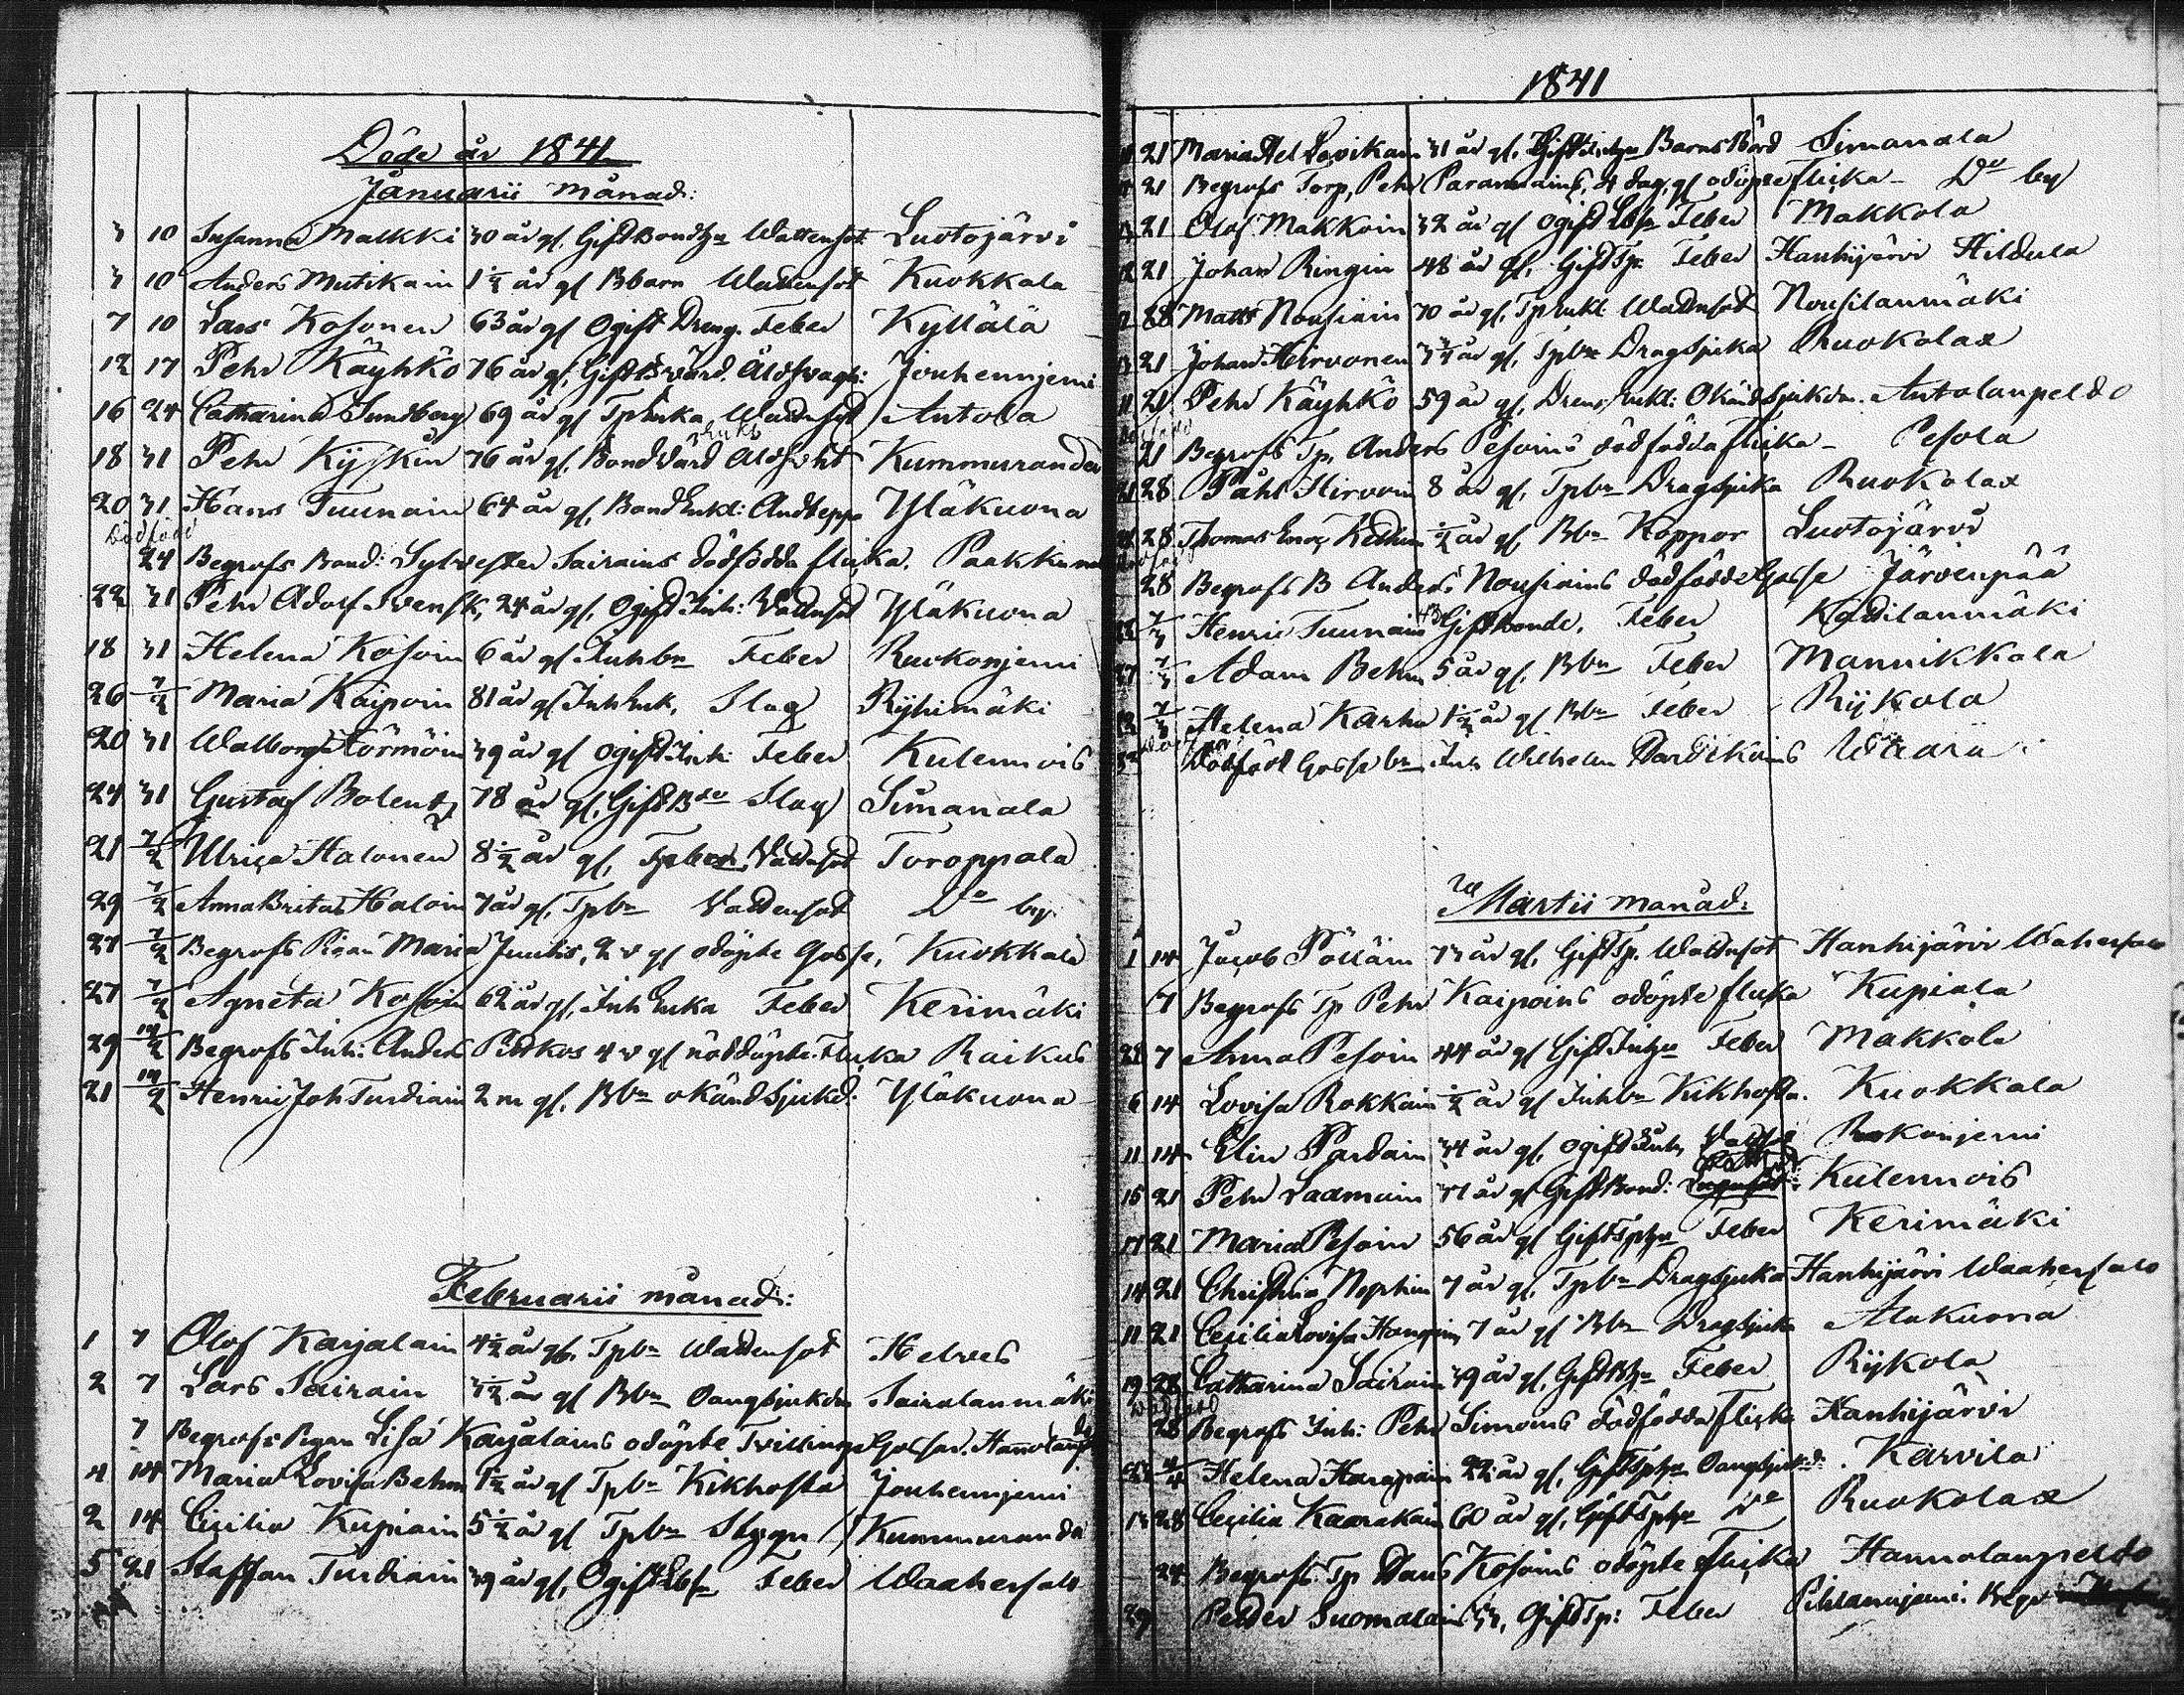 Döde år 1841
Januarii månad:
3 10 Susanna Malkki 30 år gl. Gift Bondhu Wattensot Luotojärvi
3 10 Anders Mutikain 1½ år gl Bbarn Wattensot Kuokkala
7 10 Lars Kosonen 63 år gl Ogift Dreng. Feber Kyllälä
12 17 Pehr Käyhkö 76 år gl, Gift B.värd. Åldersvagh: Jouhennjemi
16 24 Catharina Sundberg 69 år gl Tp Enka Wattensot Antola
18 31 Pehr Kyskin 76 år gl. Bondvärd Enkl Kummuranda
20 31 Hans Tuunain 64 år gl, Bond Enkl: Andteppa Yläkuona
Dödfödd
24 Begrofs Bond: Sylvester Sairains dödfödda flicka. Paakkuna
22 31 Pehr Adolf Svensk, 24 år gl, Ogift Inh: Vattusot Yläkuona
18 31 Helena Kosoin 6 år gl Inhbn Feber Ruokonjemi
26 7/2 Maria Kaipoin 81 år gl Inh Enk, Slag Ryhimäki
20 31 Walborg Törmöin 39 år gl ogift Inh: Feber Kulennois
24 31 Gustaf Bolentz 78 år gl, Gift Bde Slag Simanala
21 7/2 Ulrica Halonen 8½ år gl, Tpbrn Vattusot Toroppala
29 7/2 Anna Brita Haloin 7 år gl, Tpbn Vattensot Do by
27 7/2 Begrofs Pigan Maria Juutis, 2 v gl odöpte Gosse, Kuokkala
27 7/2 Agneta Kosoin 62 år gl, Inh Enka Feber Kerimäki
29 14/2 Begrofs Inh: Anders Pitkos 4 v gl nöddöpte Flicka Raikus
21 14/2 Henric Joh Turtiain 2 m gl. Bbn okänd Sjukd: Yläkuona
Februarii månad:
1 7 Olof Karjalain 4½ år gl. Tpbn Wattensot Helves
2 7 Lars Sairain 3½ år gl Bbn Oangsjukdm Sairalanmäki
7 Begrofs Pigan Lisa Karjalains odöpte Tvillinge Gossar.
4 14 Maria Lovisa Behm 1½ år gl Tpbn Kikhosta Jouhennjemi
2 14 Cecilia Kupiain 5½ år gl Tpbn Kummuranda
5 21 Staffan Turtiain 39 år gl, Ogift Feber Waahersalo
1841
21 Maria Hel Lavikain 31 år gl. Gift Barns Börd Simanala
21 Begrofs Torp, Pehr Paranains, 4 dag, gl odöpte flicka - Do by
21 Olof Makkoin 32 år gl ogift Feber Makkola
21 Johan Ringin 48 år gl. Gift Tp. Feber Hanhijärvi Hildula
28 Matts Nousiain 70 år gl, Tp Enkl. Wattusot Nousilanmäki
21 Johan Hirvonen 3¾ år gl, Tpbn Dragsjuka Ruokolax
11 21 Pehr Käyhkö 59 år gl, Dreng Enkl: Okänd Sjukdm. Antolanpeldo
21 Begrofs Tp. Anders Pesoins dödfödda flicka - Pesola
21 28 Påhl Hirvoin 8 år gl, Tpbn Dragsjuka Ruokolax
28 Thomas ½ år gl, Bbn Koppor Luotojärvi
28 Begrofs B Anders Nousiains dödfödde Gosse Järvenpää
7/3 Henric Tuunain Gift bonde, Feber Kotilanmäki
27 7/3 Adam Behm 5 år gl, Bbn Feber Mannikkala
7/3 Helena Karhu 1½ år gl Bbn Feber Rykola
Dödfödt Gosse bn Inh Wilhelm Partikains Waara
Martii månad:
1 14 Jacob Pöllain 73 år gl, Gift Tp. Wattusot Hanhijärvi Wahersalo
7 Begrofs Tp Pehr Kaipoins odöpte flicka Kupiala
28 7 Anna Pesoin 44 år gl Gift Inhu Feber Makkola
6 14 Lovisa Rokkain ½ år gl Inhbn Kikhosta. Kuokkala
11 14 Elin Partain 34 år gl, ogift Inh, Ruokonjemi
15 21 Pehr Laamain 37 år gl Gift Bond: Kulennois
17 21 Maria Pesoin 56 år gl Gift Tphu Feber Kerimäki
14 21 Christina 7 år gl, Tpbn Dragsjuka Hanhijärvi Waahersalo
11 21 Cecilia Lovisa 7 år gl Bbn Dragsjuka Alakuona
19 28 Catharina Sairain 39 år gl, Gift Bhu Feber Rykola
Dödfödd
28 Begrofs Inh: Pehr Simoins dödfödda flicka Hanhijärvi
Helena Harapain 22 år gl, Gift Tphu Oangsjukd: Karvila
13 28 Cecilia Kaarakain 60 år gl, Gift Tphu Do Ruokolax
24 Begrofs Tp Daus Kosoins odöpte flicka Hannolanpeldo
29 Petter Suomalain 33, Gift Tp: Feber Pihlannjemi.